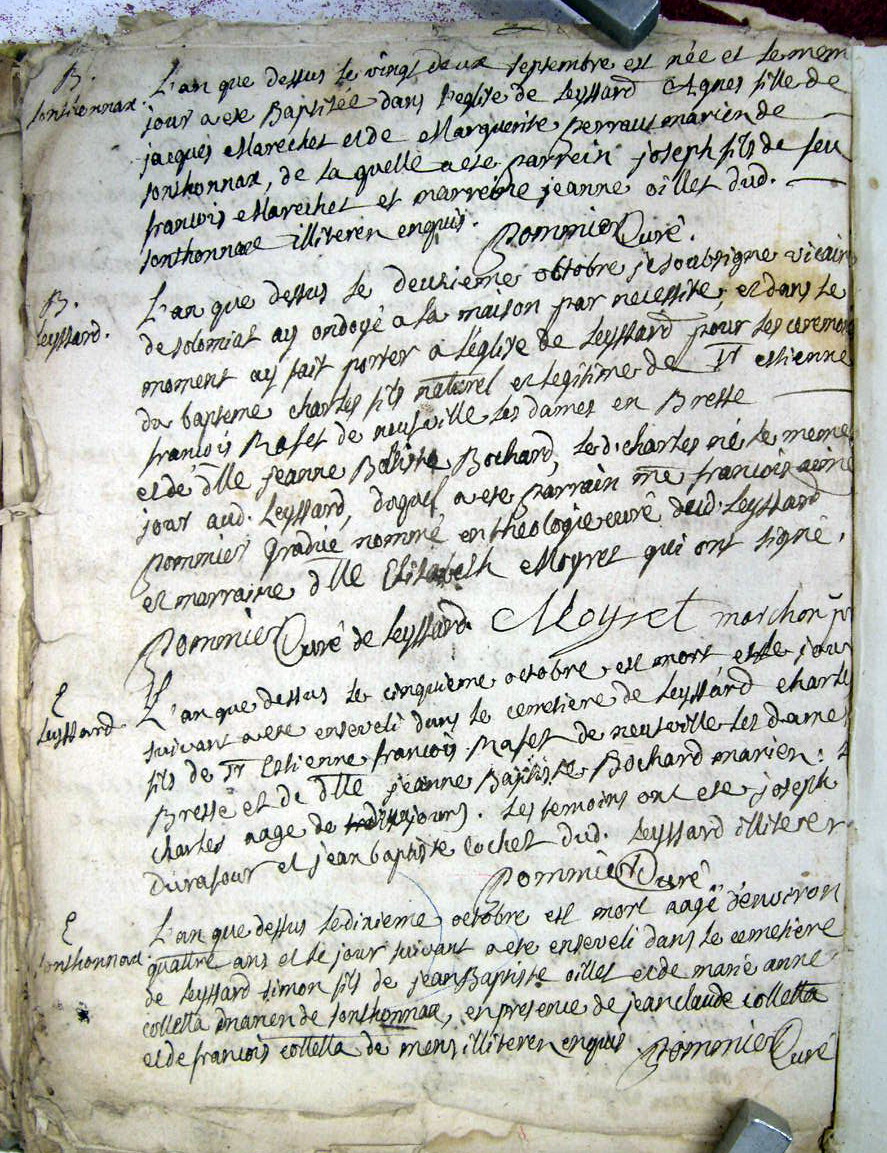 B.
Sonthonnax.
L'an que dessus le vingt deux septembre est née et le mem
jour a ete Baptisée dans l'eglise de Leyssard Agnes fille de
jacques Marechet et de Marguerite perraut mariés de
sonthonnax, de la quelle a ete parrein joseph fils de feu
francois Marechet et marreine jeanne oillet dud.
sonthonnax illiterés enquis.
Pommier Curé.
B.
Leyssard.
L'an que dessus le deuxieme octobre je soubsigné vicair
de solomiat ay ondoyé a la maison par necessité, et dans le
moment ay fait porter a l'église de Leyssard pour les ceremon
du bapteme charles fils naturel et legitime de Sr estienne
francois Rafet de neufville les dames en Bresse
et de dlle jeanne Batiste Bochard, led. charles né le meme
jour aud. Leyssard, duquel a ete parrain me francois aimé
Pommier gradué nommé en theologie curé dud. Leyssard
et marraine dlle Elizabeth Moyret qui ont signé.
Pommier Curé de Leyssard. Moyret marchon
E
Leyssard
L'an que dessus le cinquieme octobre est mort, et le jour
suivant a ete enseveli dans le cemetiere de Leyssard charle
fils de Sr Estienne francois Rafet de neufville les dames
Bresse et de dlle jeanne Baptiste Bochard mariés:
charles aagé de jours. Les temoins ont ete joseph
Durafour et jean baptiste cochet dud. Leyssard illiterés
Pommier Curé
E
Sonthonnax.
L'an que dessus le dixieme octobre est mort aagé d'environ
quattre ans et le jour suivant a ete enseveli dans le cemetiere
de Leyssard simon fils de jean Baptiste oillet et de marie anne
colletta mariés de sonthonnax, en presence de jean claude colletta
et de francois colletta de mens illiterés enquis. Pommier Curé